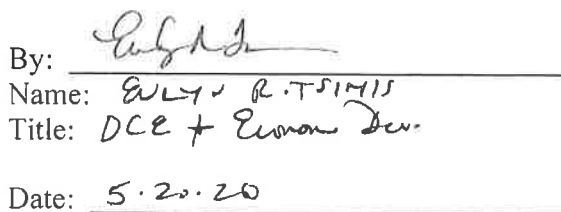 By:
Name: EVLYN R. TSIMIS
Title: DCE + Econom Dev.
Date: 5.20.20